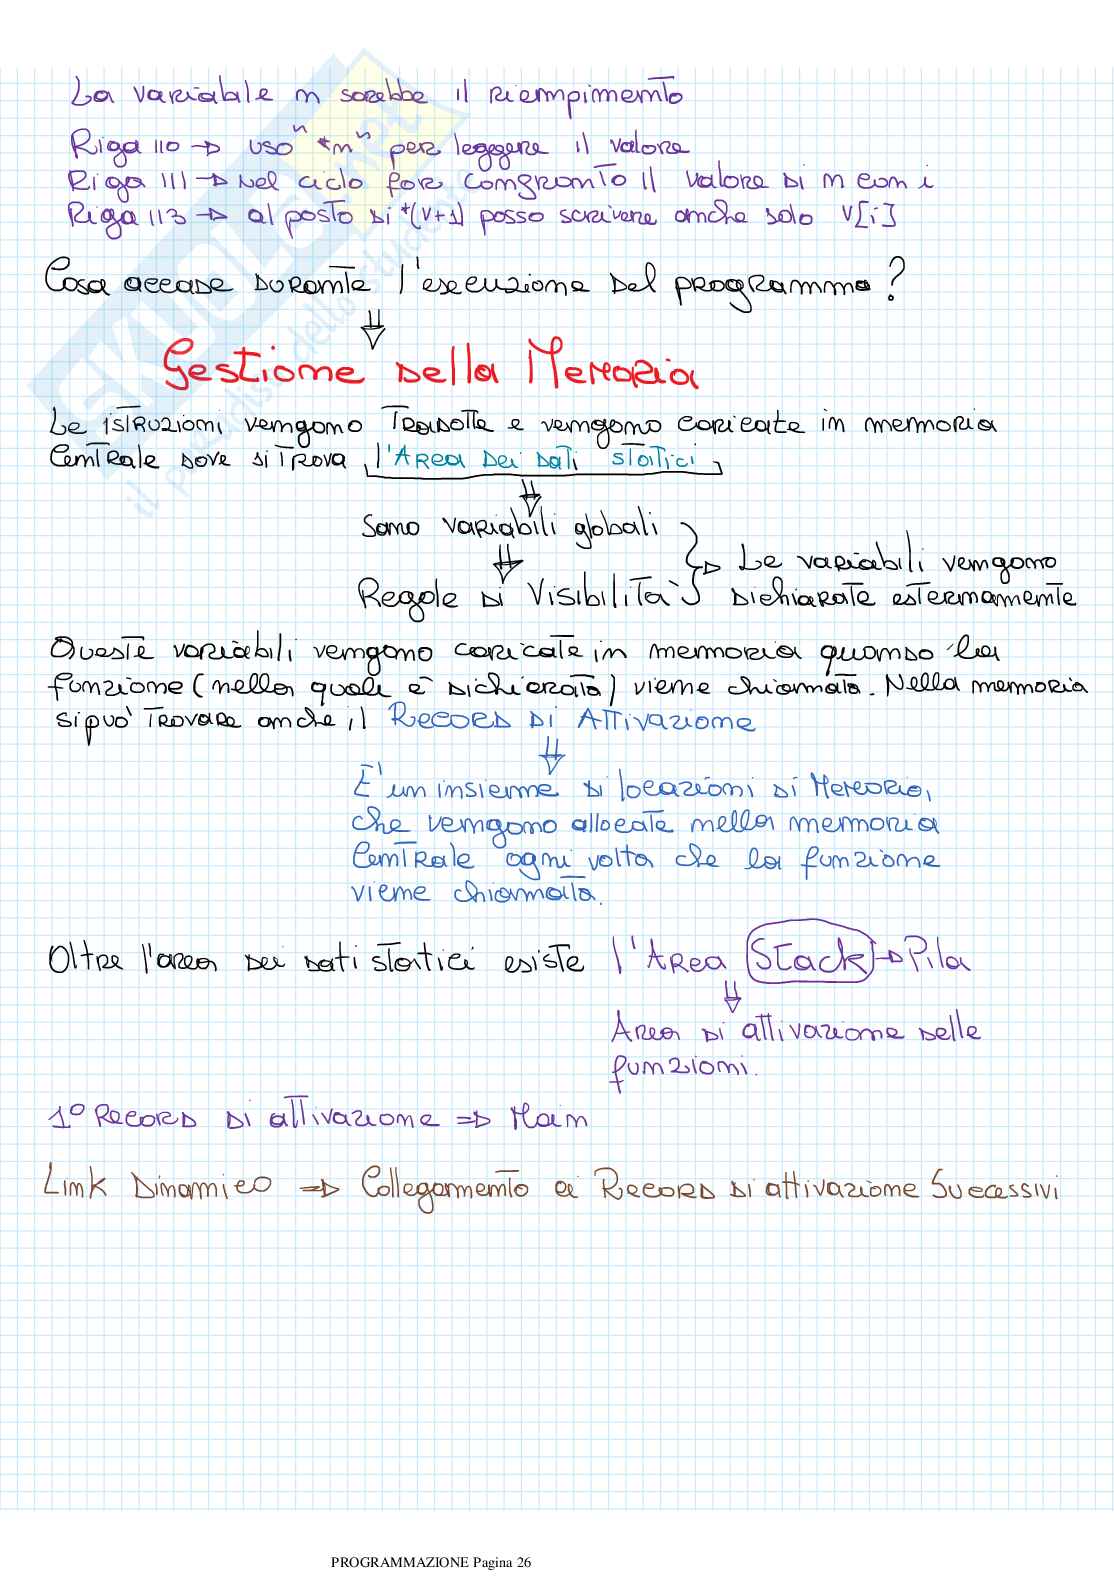 La variabile n sarebbe il riempimento
Riga 110 → uso "*n" per leggere il valore
Riga 111 → Nel ciclo for confronto il valore di n con i
Riga 113 → al posto di *(v+1) posso scrivere anche solo v[i]
Cosa accade durante l'esecuzione del programma?
⇓
Gestione della Memoria
Le istruzioni vengono tradotte e vengono caricate in memoria
centrale dove si trova l'Area dei dati statici
⇓
Sono variabili globali
⇓
} → Le variabili vengono
Regole di Visibilità dichiarate esternamente
Queste variabili vengono caricate in memoria quando la
funzione (nella quale è dichiarata) viene chiamata. Nella memoria
si può trovare anche il Record di Attivazione
⇓
E' un insieme di locazioni di Memoria,
che vengono allocate nella memoria
Centrale ogni volta che la funzione
viene chiamata.
Oltre l'area dei dati statici esiste l'Area Stack → Pila
⇓
Area di attivazione delle
funzioni.
1° Record di attivazione ⇒ Main
Link Dinamico ⇒ Collegamento ai Record di attivazione Successivi
PROGRAMMAZIONE Pagina 26